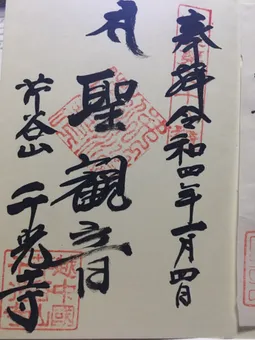 奉拝 令和四年一月四日
聖観音
芹谷山 千光寺
越中國